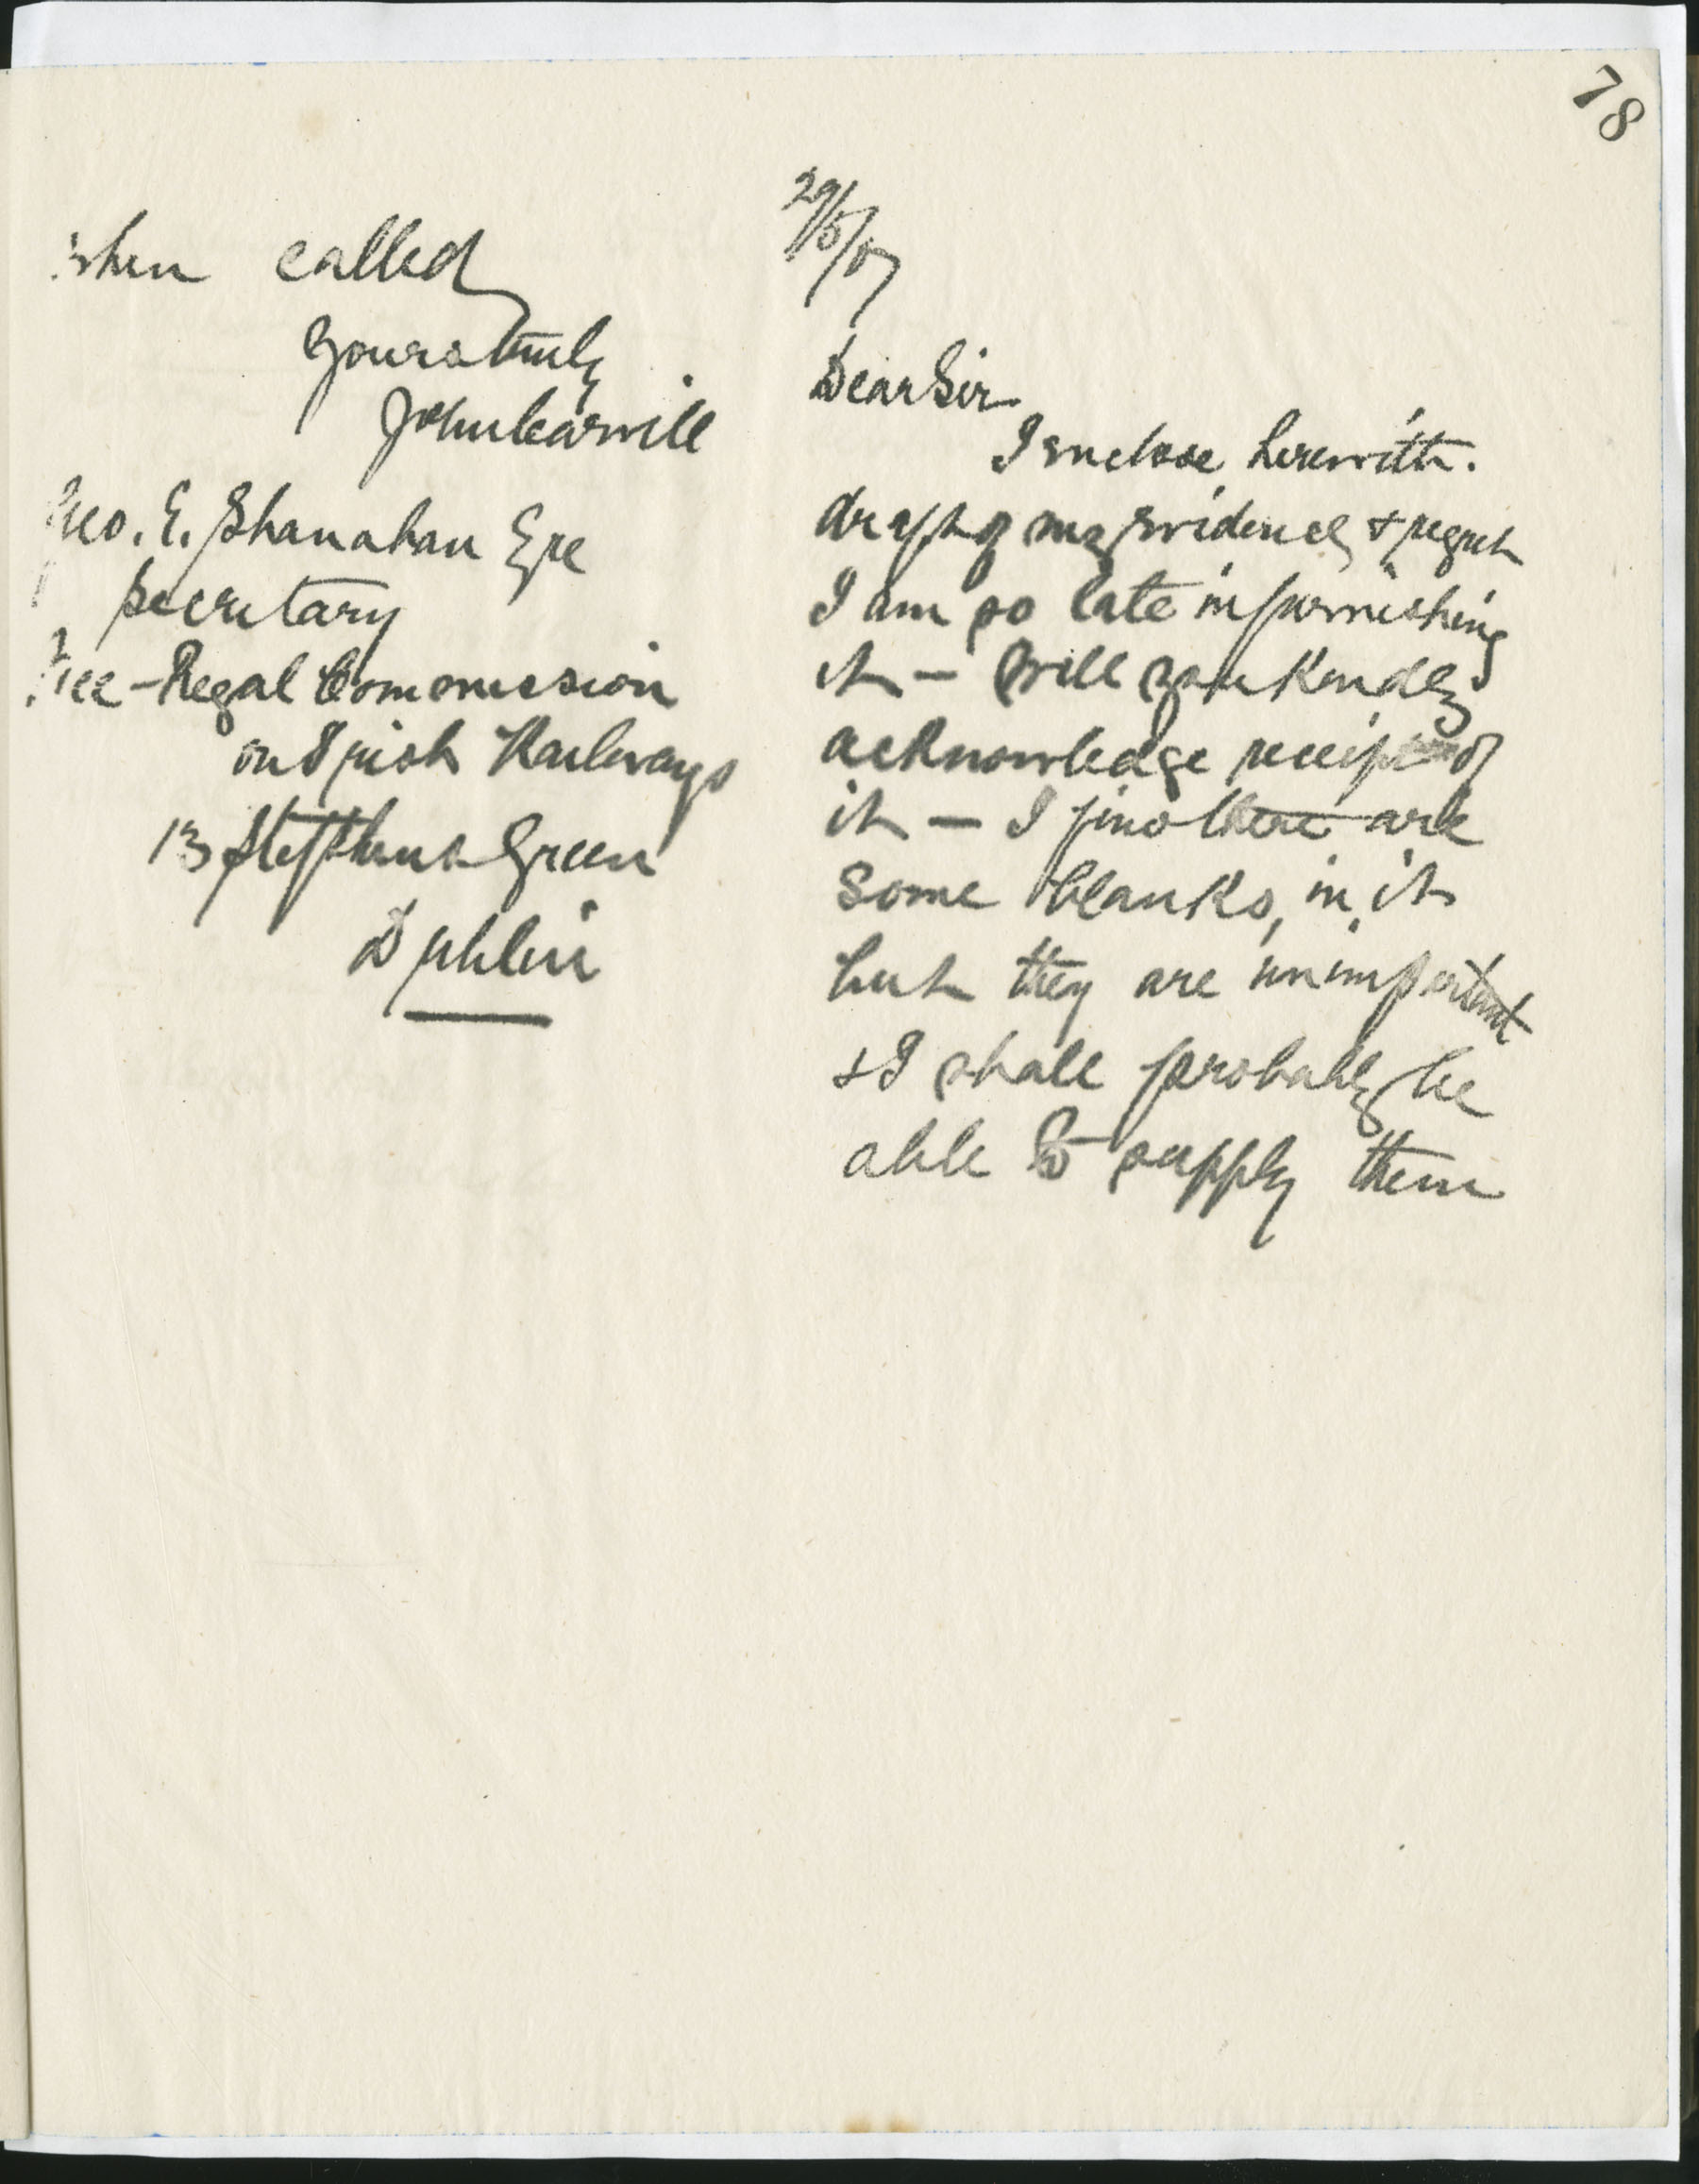 78
29/5/07
Dear Sir
I enclose herewith
draft of my evidence & regret
I am so late in furnishing
it — Will you kindly
acknowledge receipt of
it — I find there are
some blanks in it
but they are unimportant
& I shall probably be
able to supply them
when called
Yours truly
John Carvill
Geo. E. Shanahan Esq
Secretary
Vice-Regal Commission
on Irish Railways
13 Stephens Green
Dublin